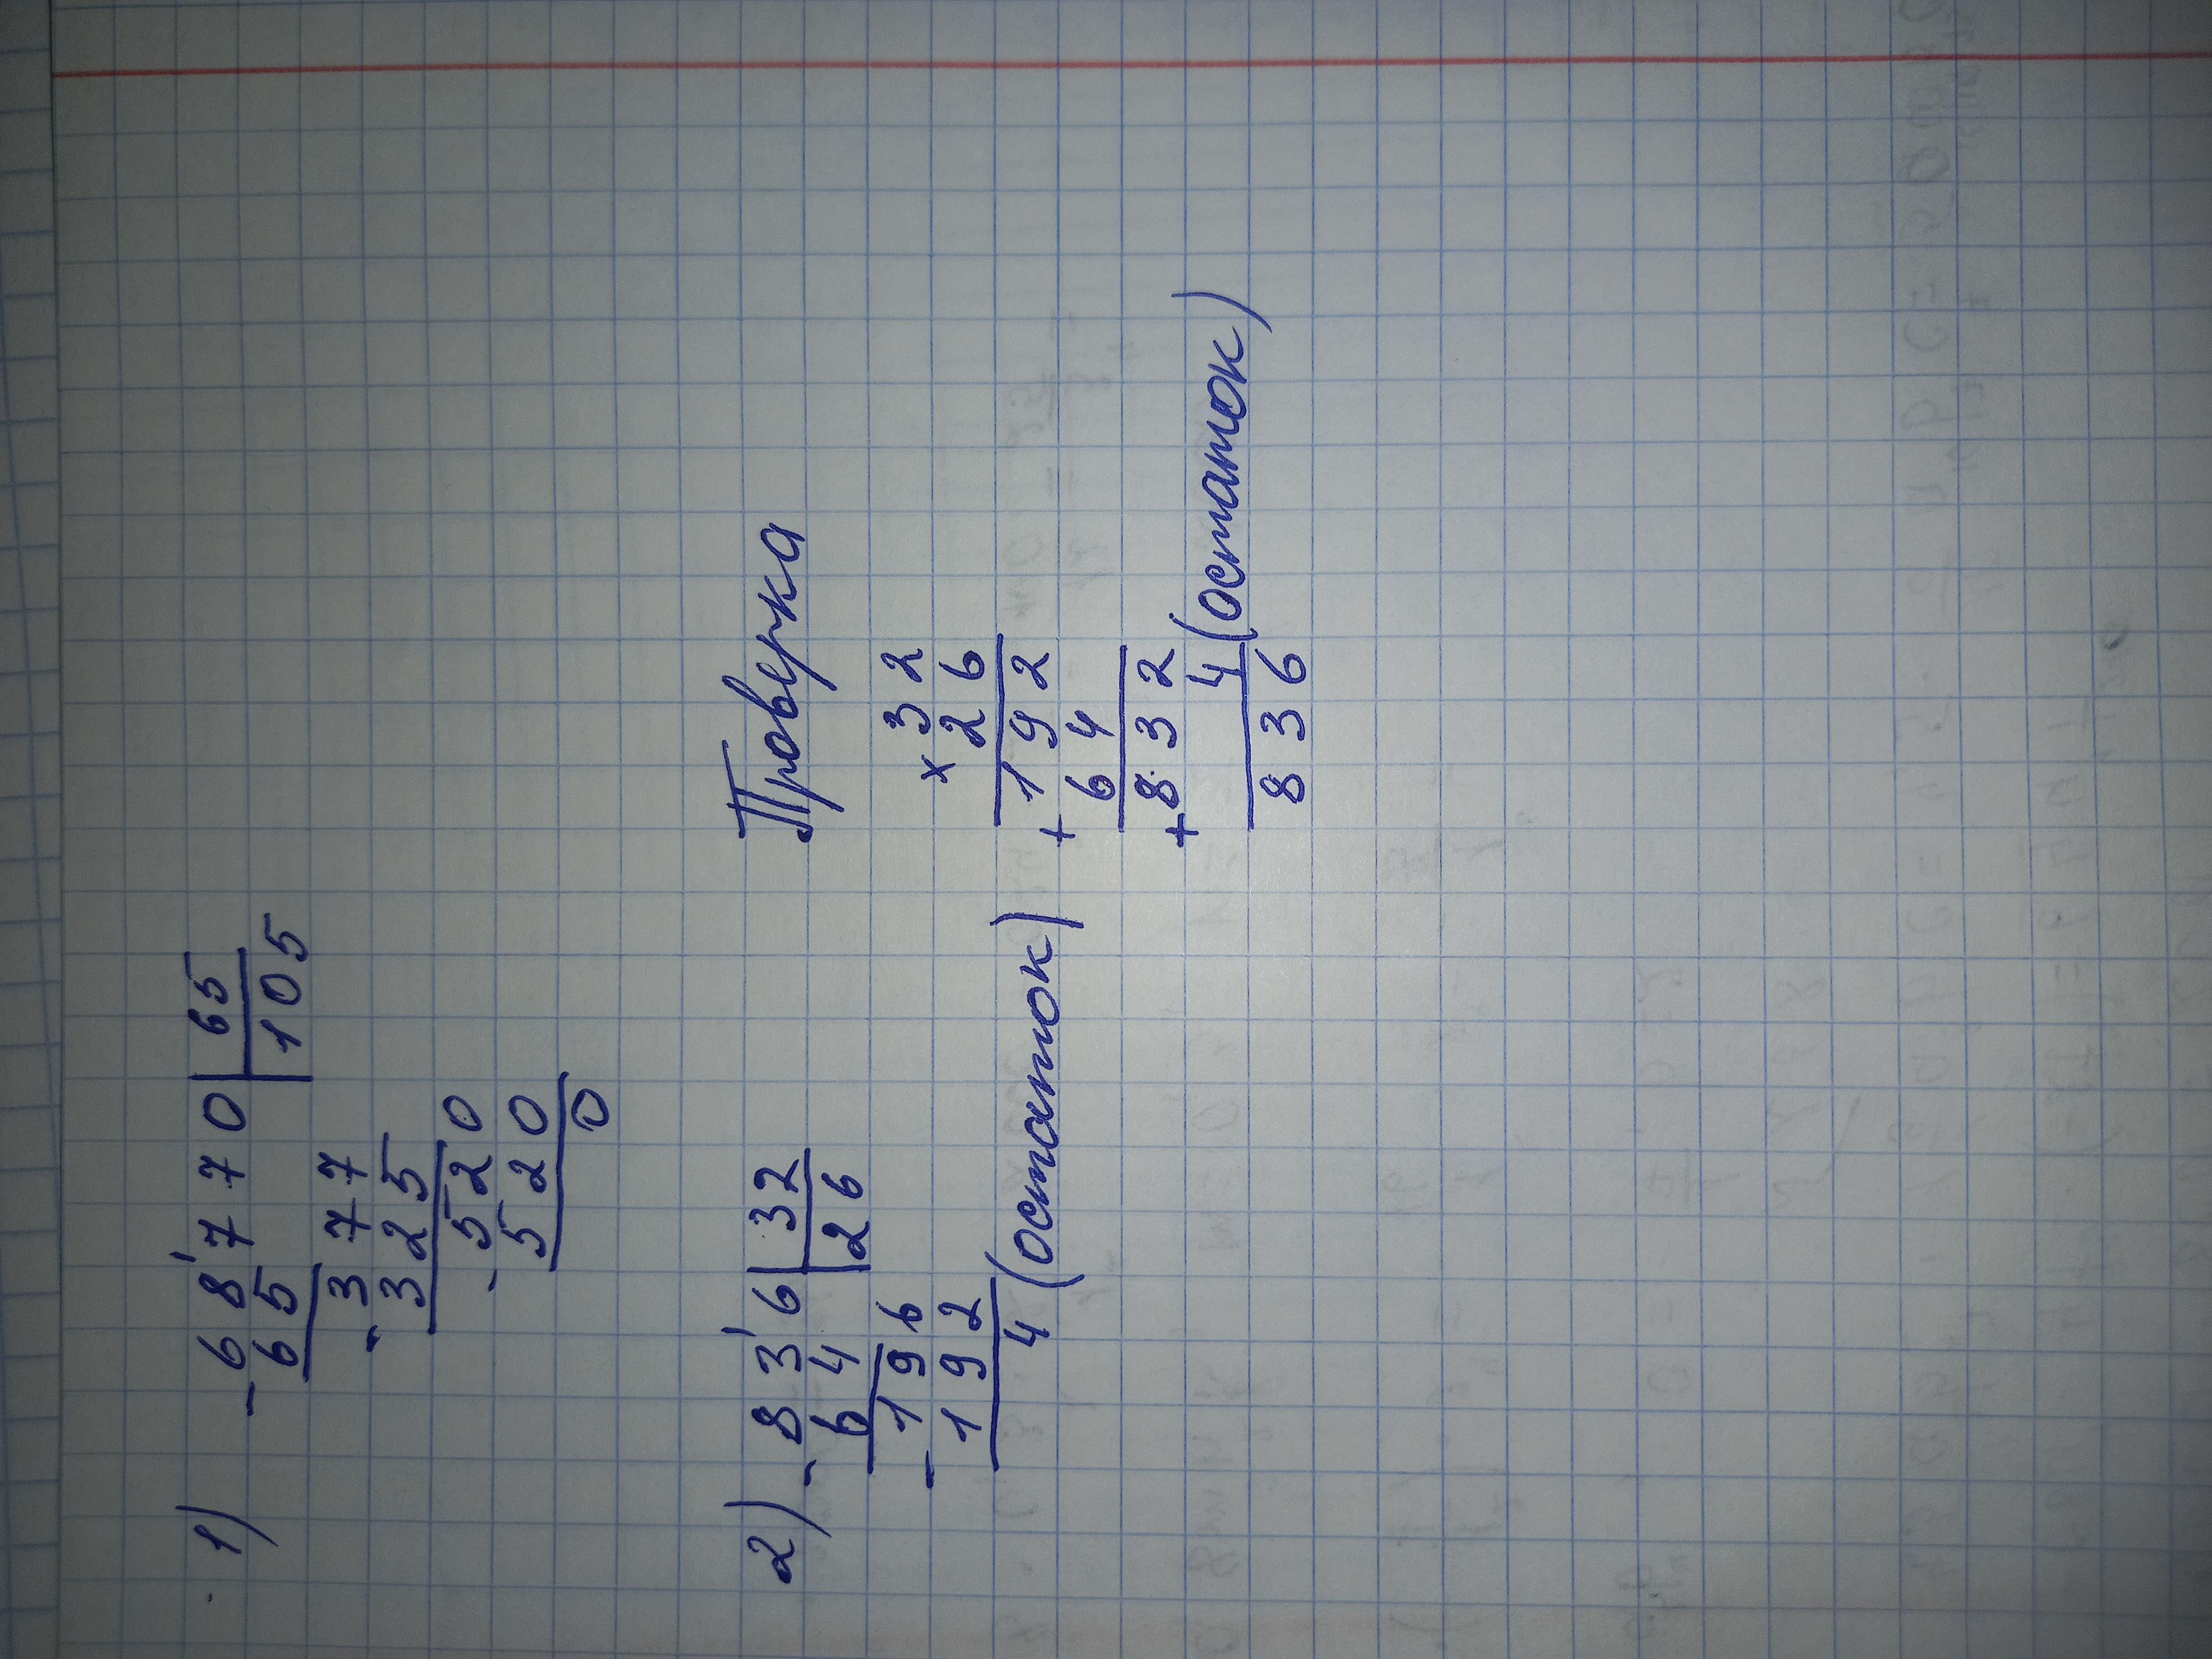 1) - 68'770 | 65
65 | 105
- 377
325
- 520
520
0
2) - 83'6 | 32
64 | 26
- 196
192
4 (остаток)
Проверка
× 32
26
192
+ 64
+ 832
4 (остаток)
836